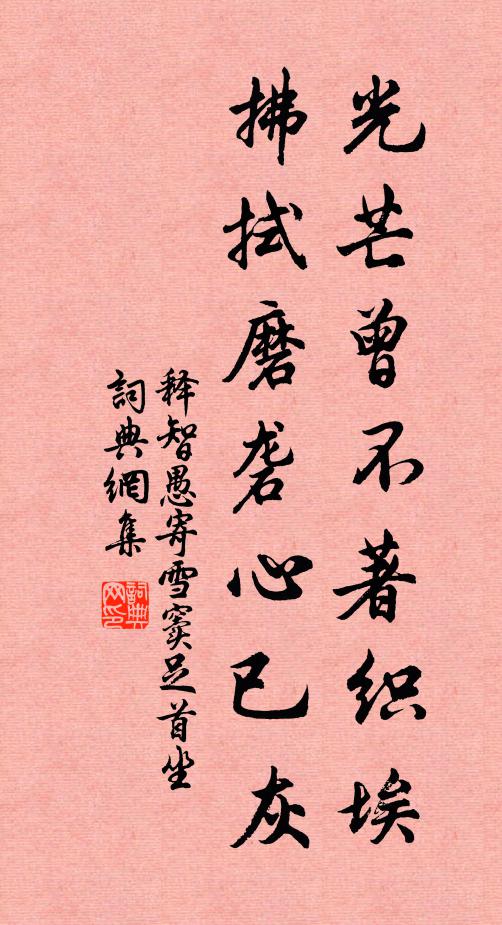 光芒曾不著织埃
拂拭磨砻心已灰
释智愚寄雪窦足首坐
詞典網集
詞典网印